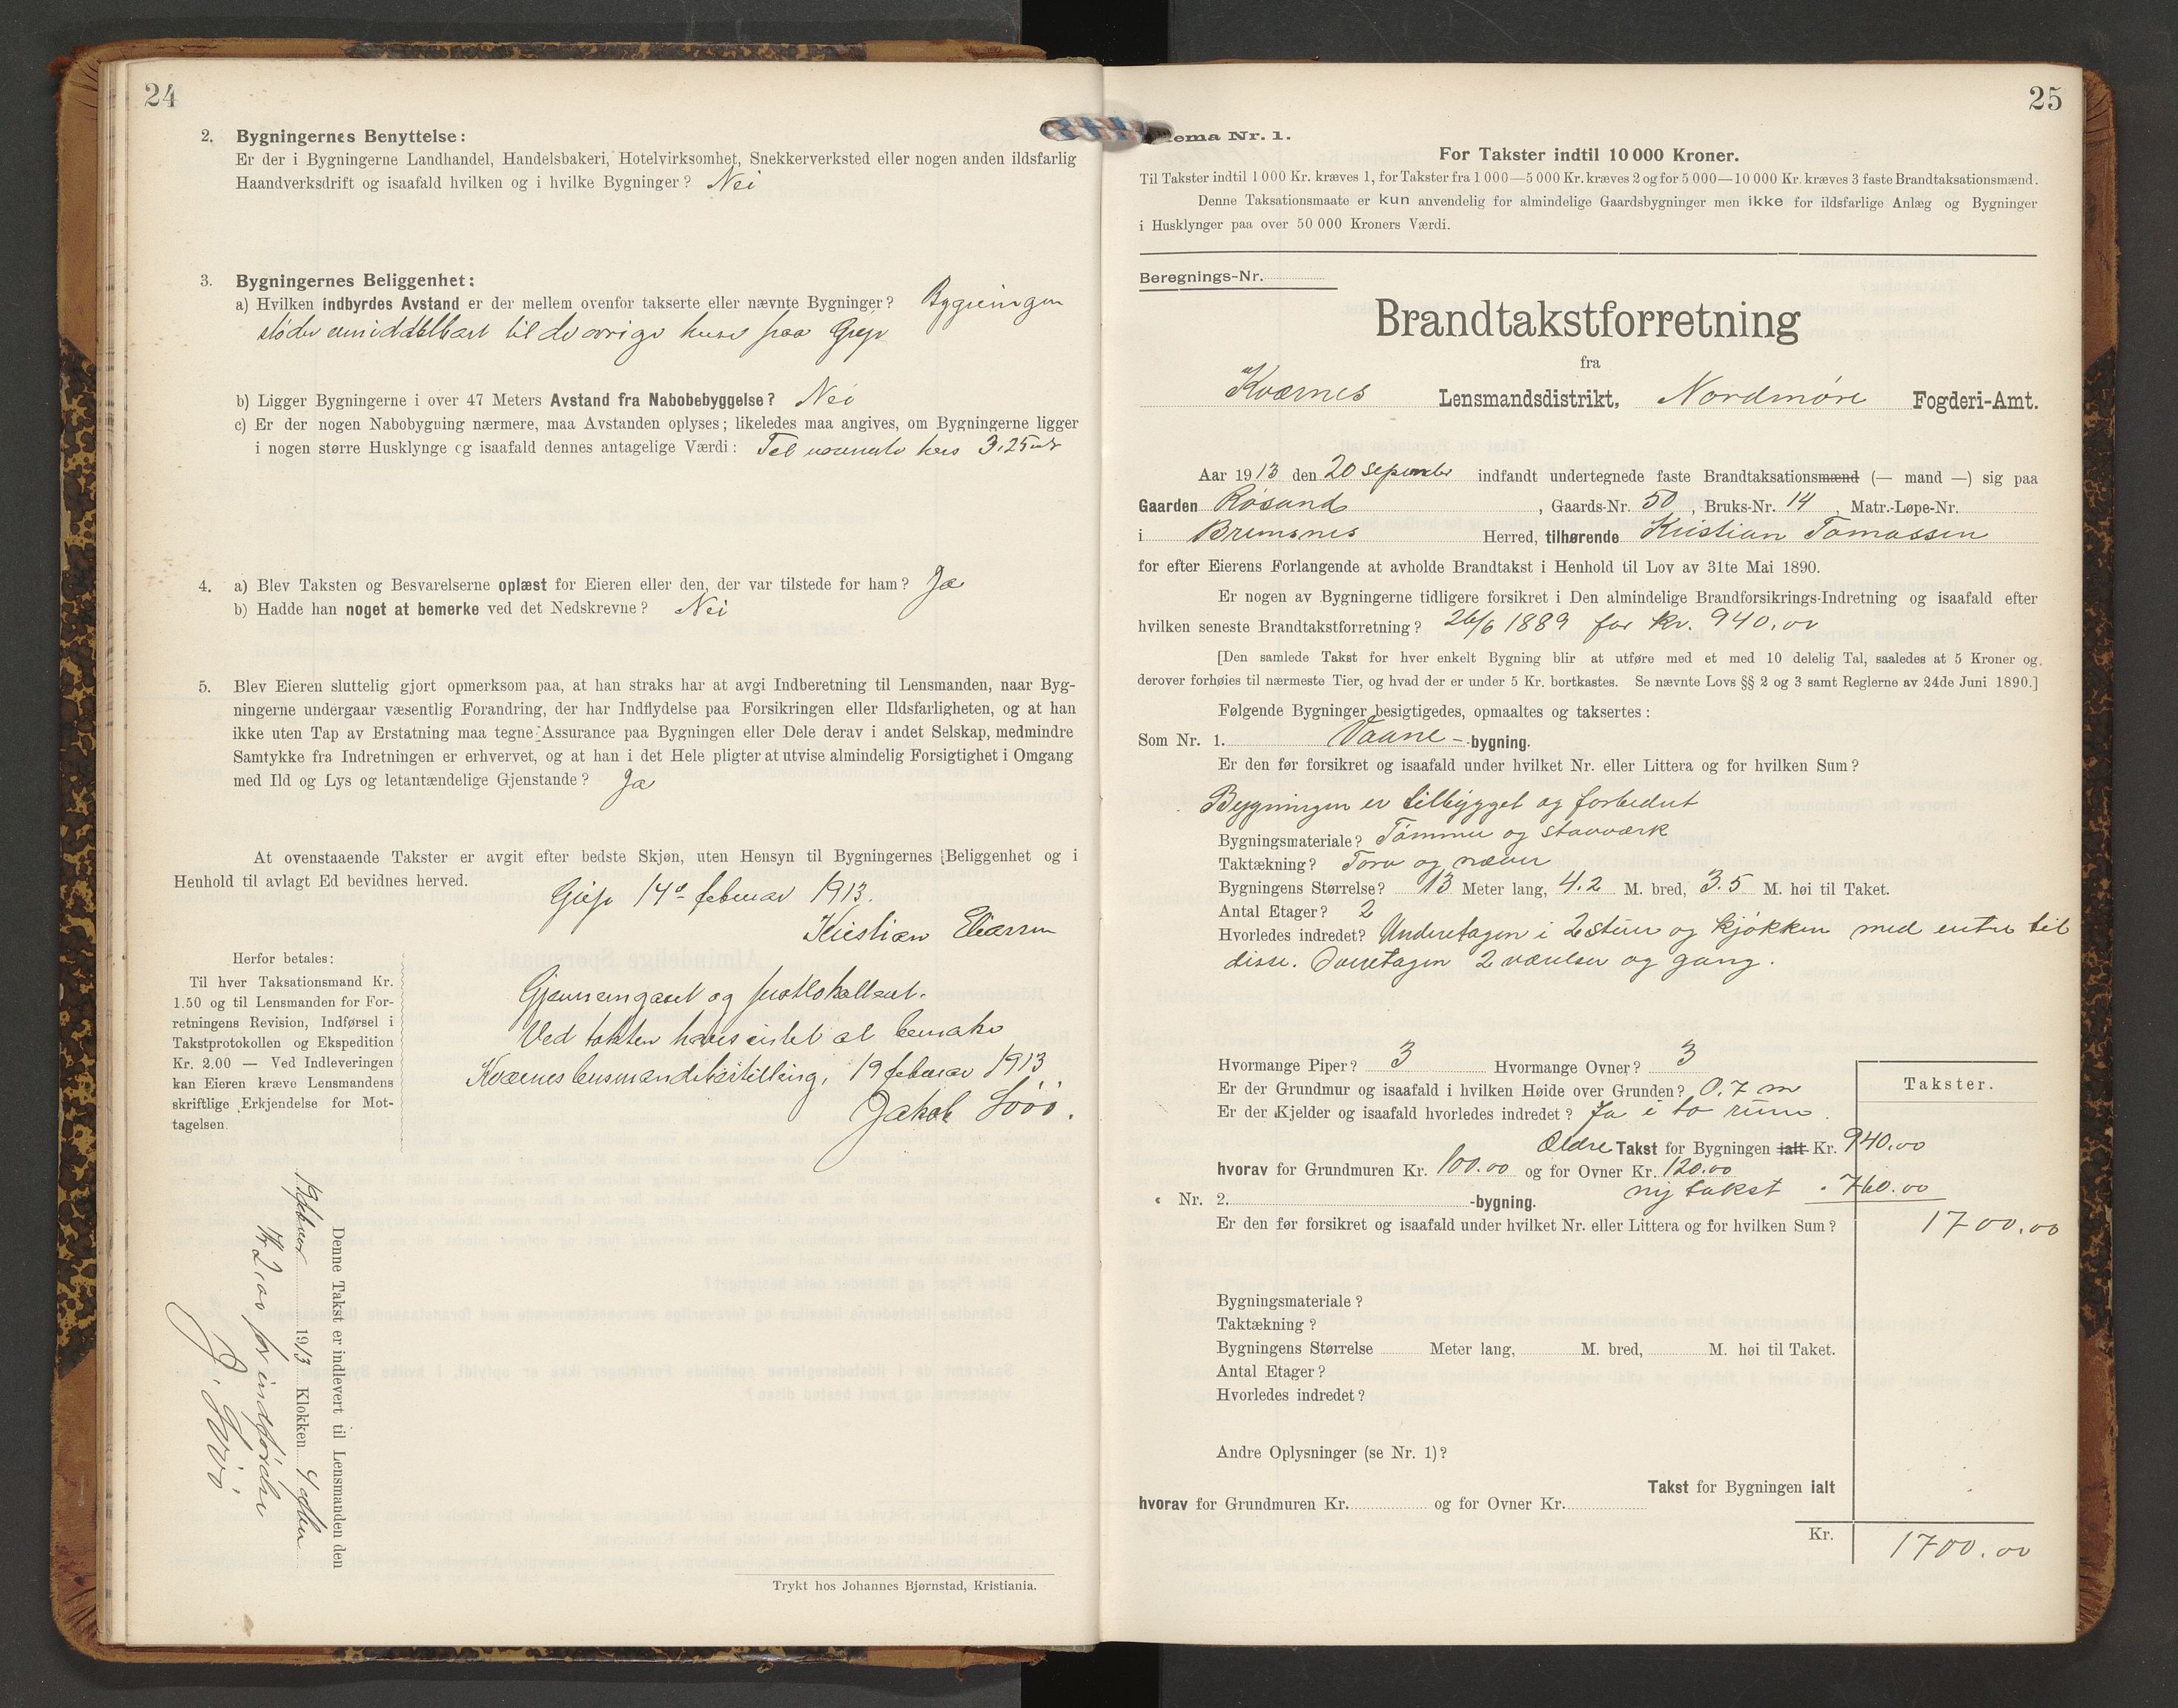 24
2. Bygningernes Benyttelse:
Er der i Bygningerne Landhandel, Handelsbakeri, Hotelvirksomhet, Snekkerverksted eller nogen anden ildsfarlig
Haandverksdrift og isaafald hvilken og i hvilke Bygninger? Nei
3. Bygningernes Beliggenhet:
a) Hvilken indbyrdes Avstand er der mellem ovenfor takserte eller nævnte Bygninger? Bygningen
støder umiddelbart til de øvrige huse paa Grip
b) Ligger Bygningerne i over 47 Meters Avstand fra Nabobebyggelse? Nei
c) Er der nogen Nabobygning nærmere, maa Avstanden oplyses; likeledes maa angives, om Bygningerne ligger
i nogen større Husklynge og isaafald dennes antagelige Værdi: Til hus 3.25 mtr
4. a) Blev Taksten og Besvarelserne oplæst for Eieren eller den, der var tilstede for ham? Ja
b) Hadde han noget at bemerke ved det Nedskrevne? Nei
5. Blev Eieren sluttelig gjort opmerksom paa, at han straks har at avgi Indberetning til Lensmanden, naar Byg-
ningerne undergaar væsentlig Forandring, der har Indflydelse paa Forsikringen eller Ildsfarligheten, og at han
ikke uten Tap av Erstatning maa tegne Assurance paa Bygningen eller Dele derav i andet Selskap, medmindre
Samtykke fra Indretningen er erhvervet, og at han i det Hele pligter at utvise almindelig Forsigtighet i Omgang
med Ild og Lys og letantændelige Gjenstande? Ja
At ovenstaaende Takster er avgit efter bedste Skjøn, uten Hensyn til Bygningernes Beliggenhet og i
Henhold til avlagt Ed bevidnes herved.
Grip 14de februar 1913.
Kristian Eliassen
Herfor betales:
Til hver Taksationsmand Kr.
1.50 og til Lensmanden for For-
retningens Revision, Indførsel i
Takstprotokollen og Ekspedition
Kr. 2.00 — Ved Indleveringen
kan Eieren kræve Lensmandens
skriftlige Erkjendelse for Mot-
tagelsen.
Gjennemgaaet og protokolleret.
Ved takten haves intet at bemærke
Kvernes lensmandsbestilling, 19 februar 1913
Jakob Löös.
Denne Takst er indlevert til Lensmanden den
februar 1913 Klokken 4 efter
Kr 2,00 for indførelse
J. Löö
Trykt hos Johannes Bjørnstad, Kristiania.
25
ema Nr. 1.
For Takster indtil 10 000 Kroner.
Til Takster indtil 1 000 Kr. kræves 1, for Takster fra 1 000—5 000 Kr. kræves 2 og for 5 000—10 000 Kr. kræves 3 faste Brandtaksationsmænd.
Denne Taksationsmaate er kun anvendelig for almindelige Gaardsbygninger men ikke for ildsfarlige Anlæg og Bygninger
i Husklynger paa over 50 000 Kroners Værdi.
Beregnings-Nr.
Brandtakstforretning
fra
Kværnes Lensmandsdistrikt, Nordmøre Fogderi-Amt.
Aar 1913 den 20 september indfandt undertegnede faste Brandtaksationsmænd (— mand —) sig paa
Gaarden Røsand, Gaards-Nr. 50, Bruks-Nr. 14, Matr.-Løpe-Nr.
i Bremsnes Herred, tilhørende Kristian Tomassen
for efter Eierens Forlangende at avholde Brandtakst i Henhold til Lov av 31te Mai 1890.
Er nogen av Bygningerne tidligere forsikret i Den almindelige Brandforsikrings-Indretning og isaafald efter
hvilken seneste Brandtakstforretning? 26/6 1889 for kr. 940,00
[Den samlede Takst for hver enkelt Bygning blir at utføre med et med 10 delelig Tal, saaledes at 5 Kroner og
derover forhøies til nærmeste Tier, og hvad der er under 5 Kr. bortkastes. Se nævnte Lovs §§ 2 og 3 samt Reglerne av 24de Juni 1890.]
Følgende Bygninger besigtigedes, opmaaltes og taksertes:
Som Nr. 1. Vaane- -bygning.
Er den før forsikret og isaafald under hvilket Nr. eller Littera og for hvilken Sum?
Bygningen er tilbygget og forbedret
Bygningsmateriale? Tømmer og stavværk
Taktækning? Torv og næver
Bygningens Størrelse? 13 Meter lang, 4.2 M. bred, 3.5 M. høi til Taket.
Antal Etager? 2
Hvorledes indredet? Underetagen i 2 stuer og kjøkken med entre til
disse. Overetagen 2 værelser og gang.
Hvormange Piper? 3 Hvormange Ovner? 3
Takster.
Er der Grundmur og isaafald i hvilken Høide over Grunden? 0.7 m
Er der Kjelder og isaafald hvorledes indredet? Ja i to rum.
Ældre Takst for Bygningen ialt Kr. 940.00
hvorav for Grundmuren Kr. 100.00 og for Ovner Kr. 120.00
ny takst 760.00
« Nr. 2. -bygning.
Er den før forsikret og isaafald under hvilket Nr. eller Littera og for hvilken Sum? 1700.00
Bygningsmateriale?
Taktækning?
Bygningens Størrelse Meter lang, M. bred, M. høi til Taket.
Antal Etager?
Hvorledes indredet?
Andre Oplysninger (se Nr. 1)?
Takst for Bygningen ialt
hvorav for Grundmuren Kr. og for Ovner Kr.
Kr. 1700.00